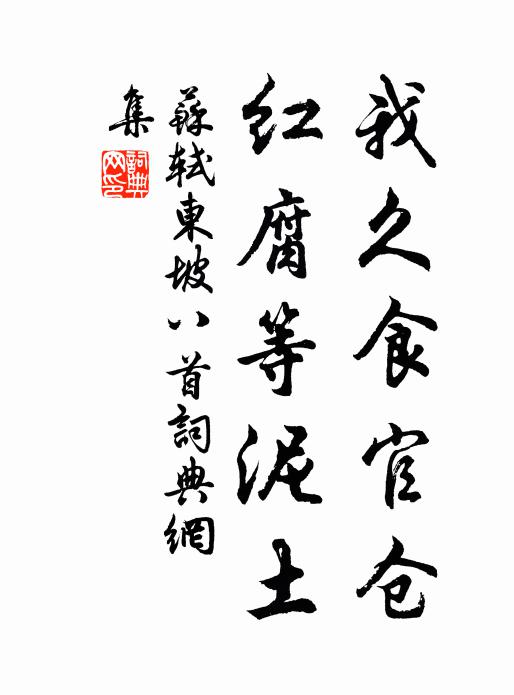 我久食官仓
红腐等泥土
蘇軾東坡八首詞典網
集
詞典
网印